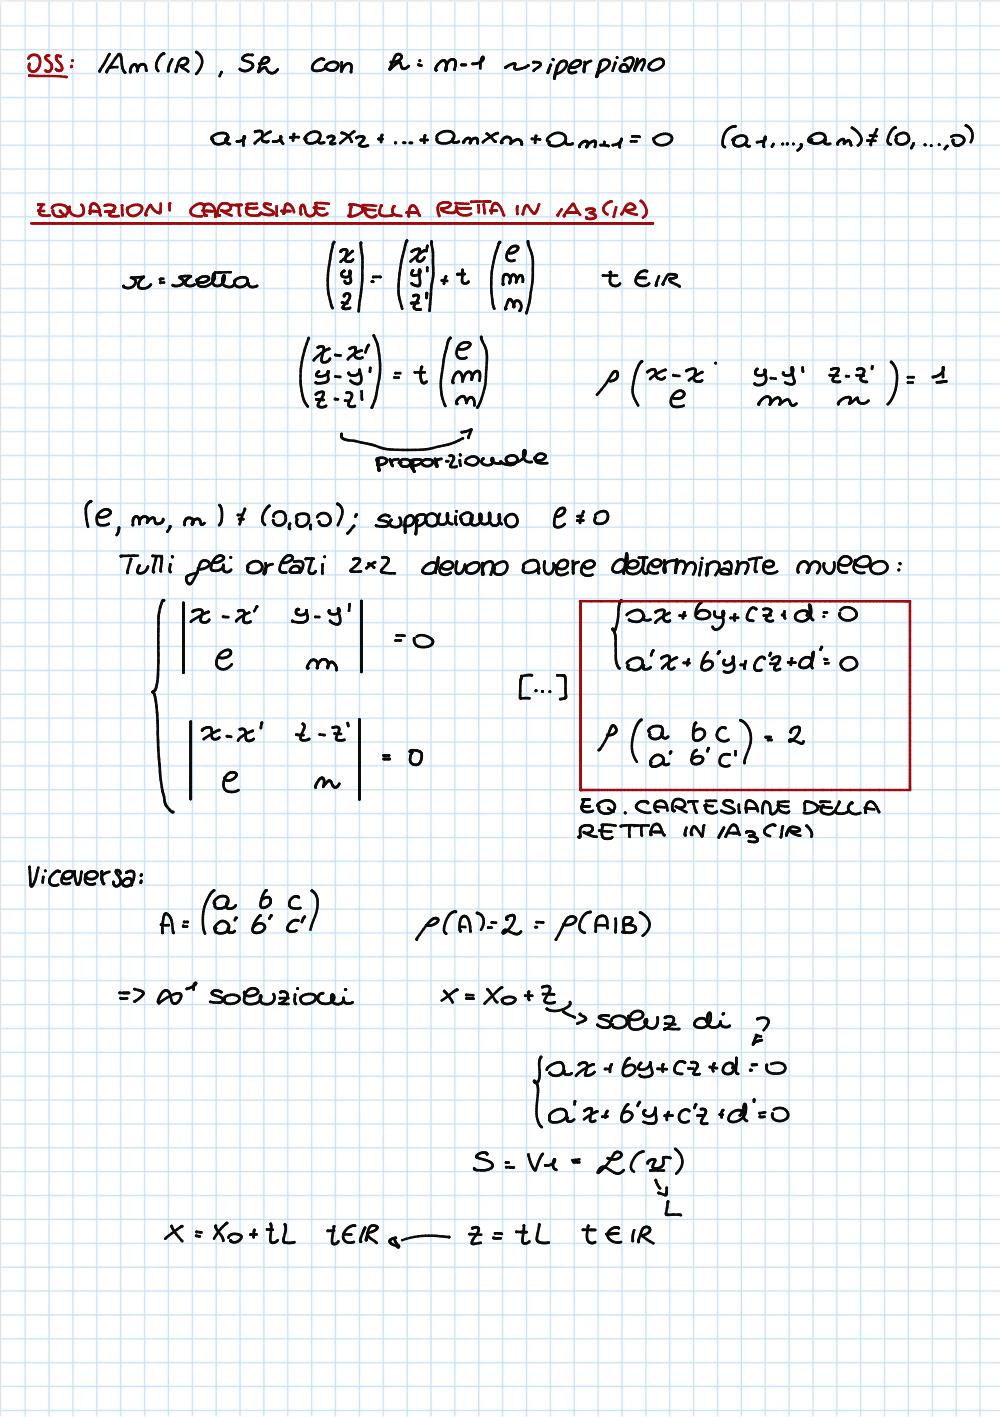 OSS: /An(IR), Sh con h = n-1 ~> iperpiano
a1x1+a2x2+...+anxn+an+1 = 0 (a1,...,an) ≠ (0,...,0)
EQUAZIONI CARTESIANE DELLA RETTA IN /A3(IR)
r = retta (x y z) = (x' y' z') + t (l m n) t ∈ IR
(x-x' y-y' z-z') = t (l m n) ρ (x-x' y-y' z-z' l m n) = 1
proporzionale
(l, m, n) ≠ (0,0,0); supponiamo l ≠ 0
Tutti gli orlati 2×2 devono avere determinante nullo:
{ |x-x' y-y'| = 0
|l m|
|x-x' z-z'| = 0
|l n|
[...]
{ ax+by+cz+d = 0
a'x+b'y+c'z+d' = 0
ρ (a b c
a' b' c') = 2
EQ. CARTESIANE DELLA
RETTA IN /A3(IR)
Viceversa:
A = (a b c
a' b' c') ρ(A) = 2 = ρ(A|B)
=> ∞^1 soluzioni x = x0 + z
-> soluz di ?
{ ax+by+cz+d = 0
a'x+b'y+c'z+d' = 0
S = V1 = L(v)
L
x = x0 + tL t∈IR ← z = tL t ∈ IR